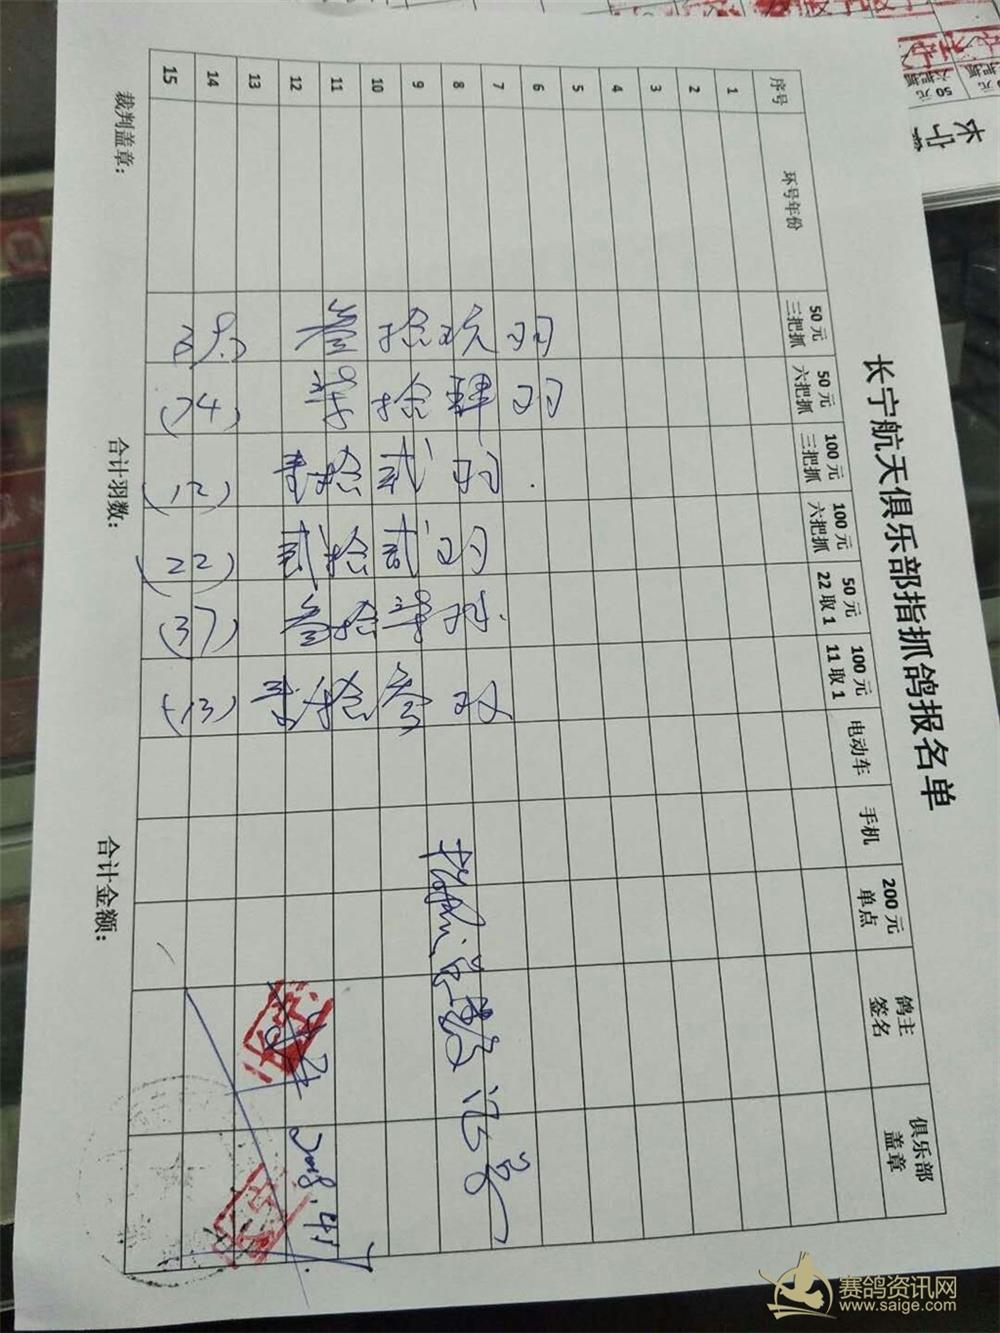 长宁航天俱乐部指抓鸽报名单
序号 环号年份 50元三把抓 50元六把抓 100元三把抓 100元六把抓 50元22取1 100元11取1 电动车 手机 200元单点 鸽主签名 俱乐部盖章
1
2
3
4
5
6
7
8
9
10
11
12
13
14
15
叁拾玖羽
拾肆羽
壹拾贰羽
(12)
贰拾贰羽
(22)
(37)
壹拾叁
(13)
2018.4.1
裁判盖章:
合计羽数:
合计金额:
50元
50元
赛鸽资讯网
www.saige.com